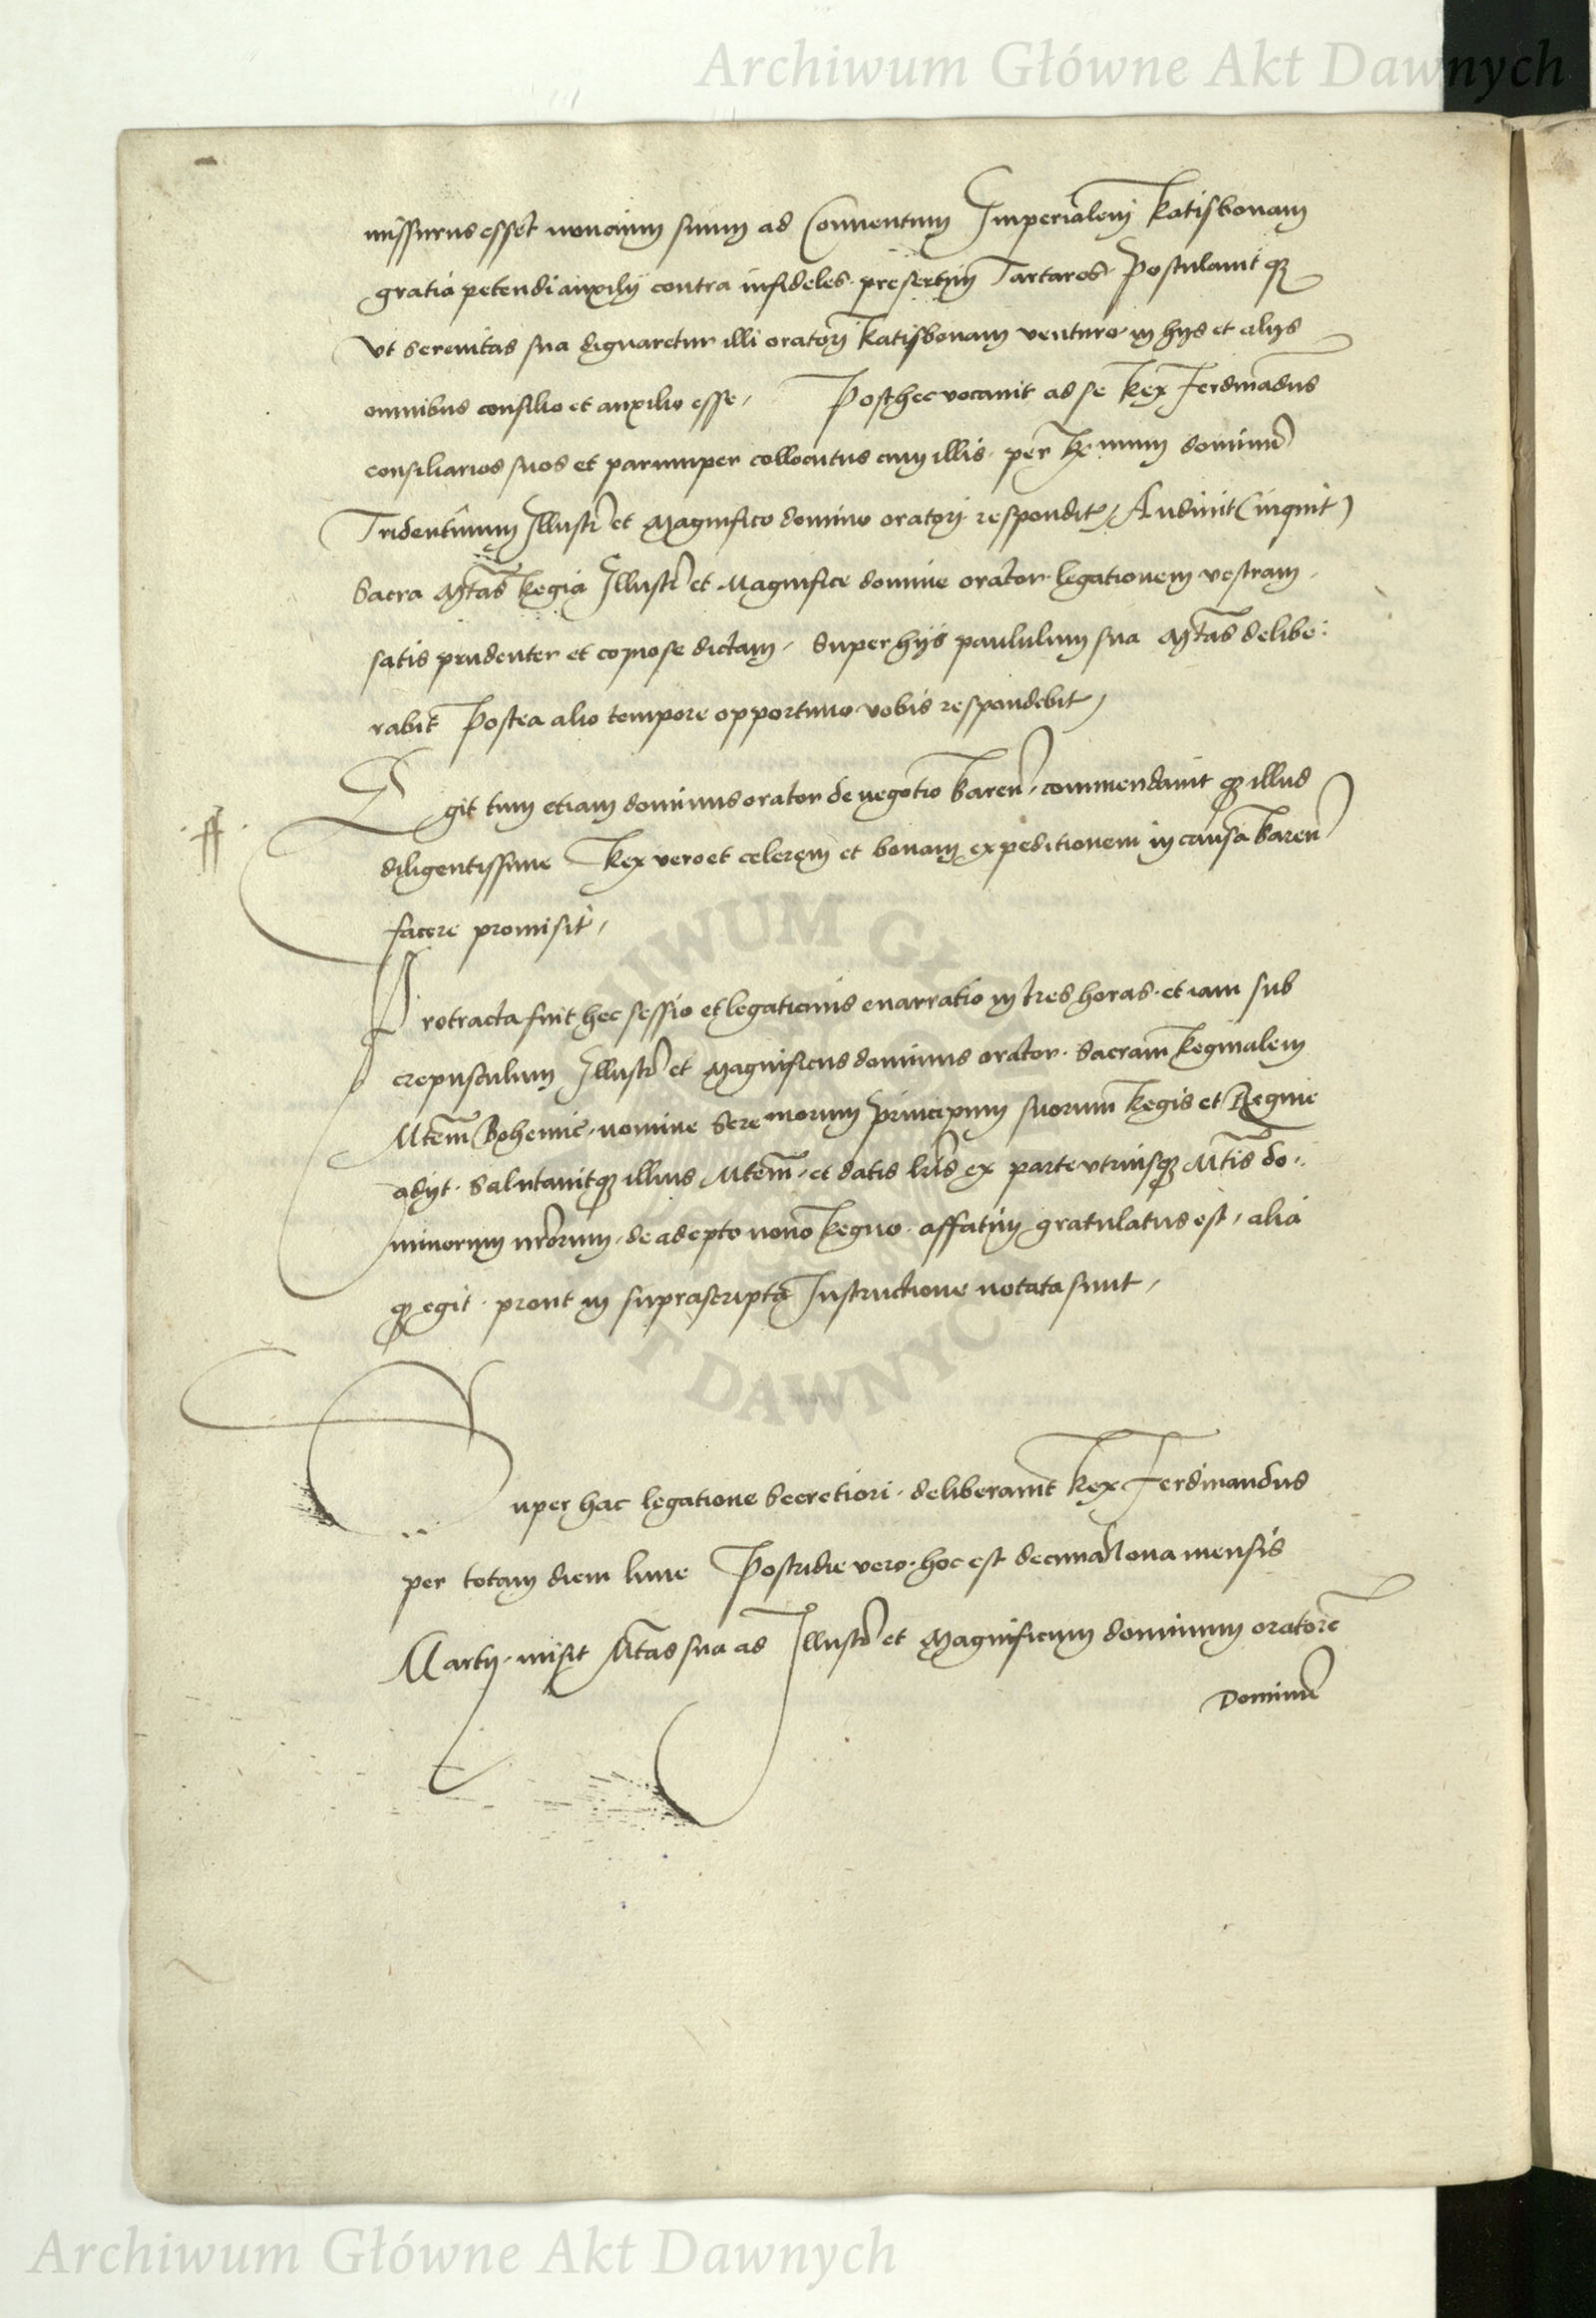 Archiwum Główne Akt Dawnych
missurus esset noncium suum ad Conventum Imperialem Ratisbonam
gratia petendi auxilij contra infideles. presertim Tartaros. Postulavit q3
Vt serenitas sua dignaretur illi oratorj Ratisbonam venturo in hijs et alijs
omnibus consilio et auxilio esse, Post hec vocavit ad se Rex Ferdinādus
consiliarios suos et parumper collocutus cum illis. per R̄e mum dominū
Tridentinum Illustrē et Magnifico domino oratorj respondit, Audivit (inquit)
Sacra M̄tas Regia Illustrē et Magnifice domine orator. legationem vestram,
satis prudenter et copiose dictam, Super hijs paululum sua M̄tas delibe:
rabit Postea alio tempore opportuno vobis respondebit,
Egit tum etiam dominus orator de negotio Baren̄, commendavit q3 illud
ff
diligentissime Rex vero et celerem et bonam expeditionem in causa Baren̄
facere promisit,
Protracta fuit hec sessio et legationis enarratio in tres horas. et iam sub
crepusculum Illustrē et Magnificus dominus orator. Sacram Reginalem
Mtēm Bohemię, nomine Sere morum Principum suorum Regis et Reginę
adijt. Salutavitq3 illius Mtēm, et datis lr̄is ex parte vtriusq3 Mtīs do:
minorum nrōrum, de adepto novo Regno. affatim gratulatus est, alia
q3 egit. prout in suprascripta Instructione notata sunt,
Super hac legatione Secretiori. deliberavit Rex Ferdinandus
per totam diem lune Postridie vero. hoc est decima Nona mensis
Martij. misit M̄tas sua ad Illustrē et Magnificum dominum oratorē
Dominū
ARCHIWUM GŁÓWNE AKT DAWNYCH
Archiwum Główne Akt Dawnych